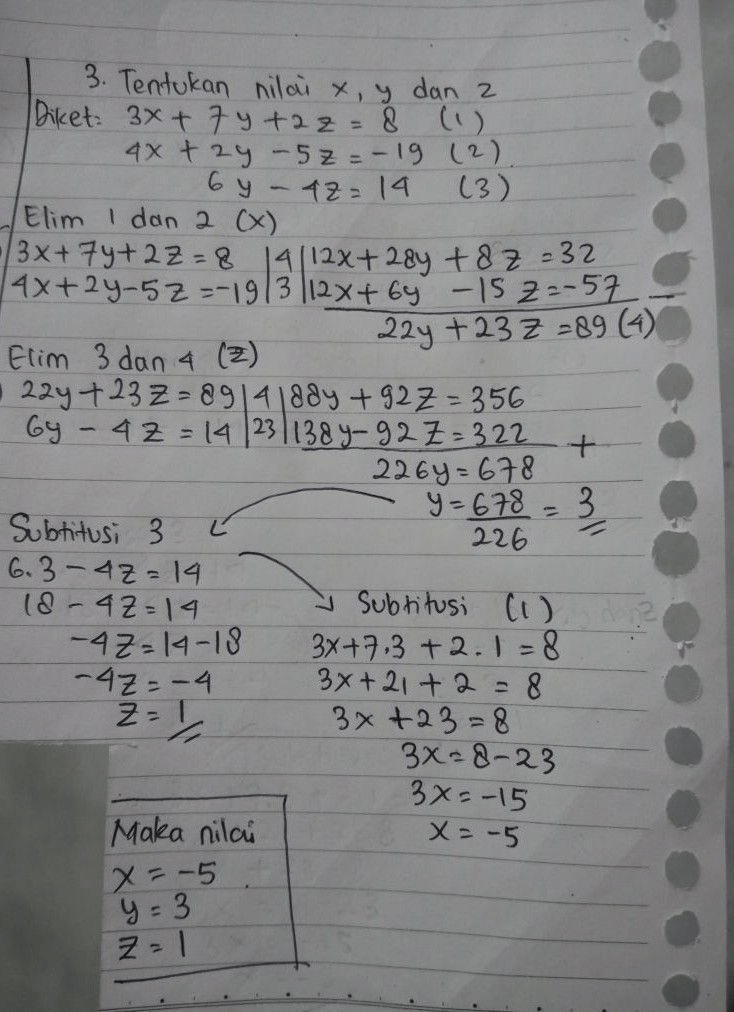 3. Tentukan nilai x, y dan z
Diket: 3x + 7y + 2z = 8 (1)
4x + 2y - 5z = -19 (2)
6y - 4z = 14 (3)
Elim 1 dan 2 (x)
3x + 7y + 2z = 8 |4| 12x + 28y + 8z = 32
4x + 2y - 5z = -19 |3| 12x + 6y - 15z = -57 -
22y + 23z = 89 (4)
Elim 3 dan 4 (z)
22y + 23z = 89 |4| 88y + 92z = 356
6y - 4z = 14 |23| 138y - 92z = 322 +
226y = 678
y = 678/226 = 3
Subtitusi 3
6.3 - 4z = 14
18 - 4z = 14
-4z = 14 - 18
-4z = -4
z = 1
Subtitusi (1)
3x + 7.3 + 2.1 = 8
3x + 21 + 2 = 8
3x + 23 = 8
3x = 8 - 23
3x = -15
x = -5
Maka nilai
x = -5
y = 3
z = 1